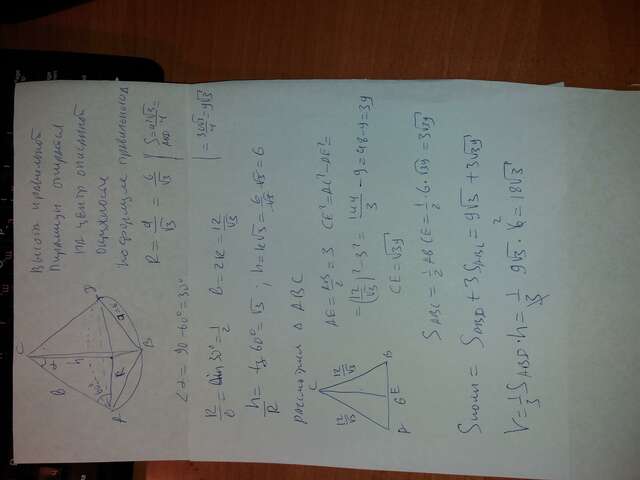 Высота правильной
Пирамиды опирается
на центр описанной
окружности
по формуле правильного
R = a/√3 = 6/√3 | S_ABD = a²√3/4 =
= 36√3/4 = 9√3
C
α
h
b
60°
R
a=6
A
B
D
∠α = 90 - 60° = 30°
R/b = sin 30° = 1/2 b = 2R = 12/√3
h/R = tg 60° = √3 ; h = R√3 = 6/√3 · √3 = 6
рассмотрим Δ ABC
C
12/√3
12/√3
A
6
E
B
AE = AB/2 = 3 CE² = AC² - AE² =
= (12/√3)² - 3² = 144/3 - 9 = 48 - 9 = 39
CE = √39
S ABC = 1/2 AB CE = 1/2 · 6 · √39 = 3√39
Sполн = S_ABD + 3 S_ABC = 9√3 + 3√39
V = 1/3 S_ABD · h = 1/3 9√3 · 6 2 = 18√3